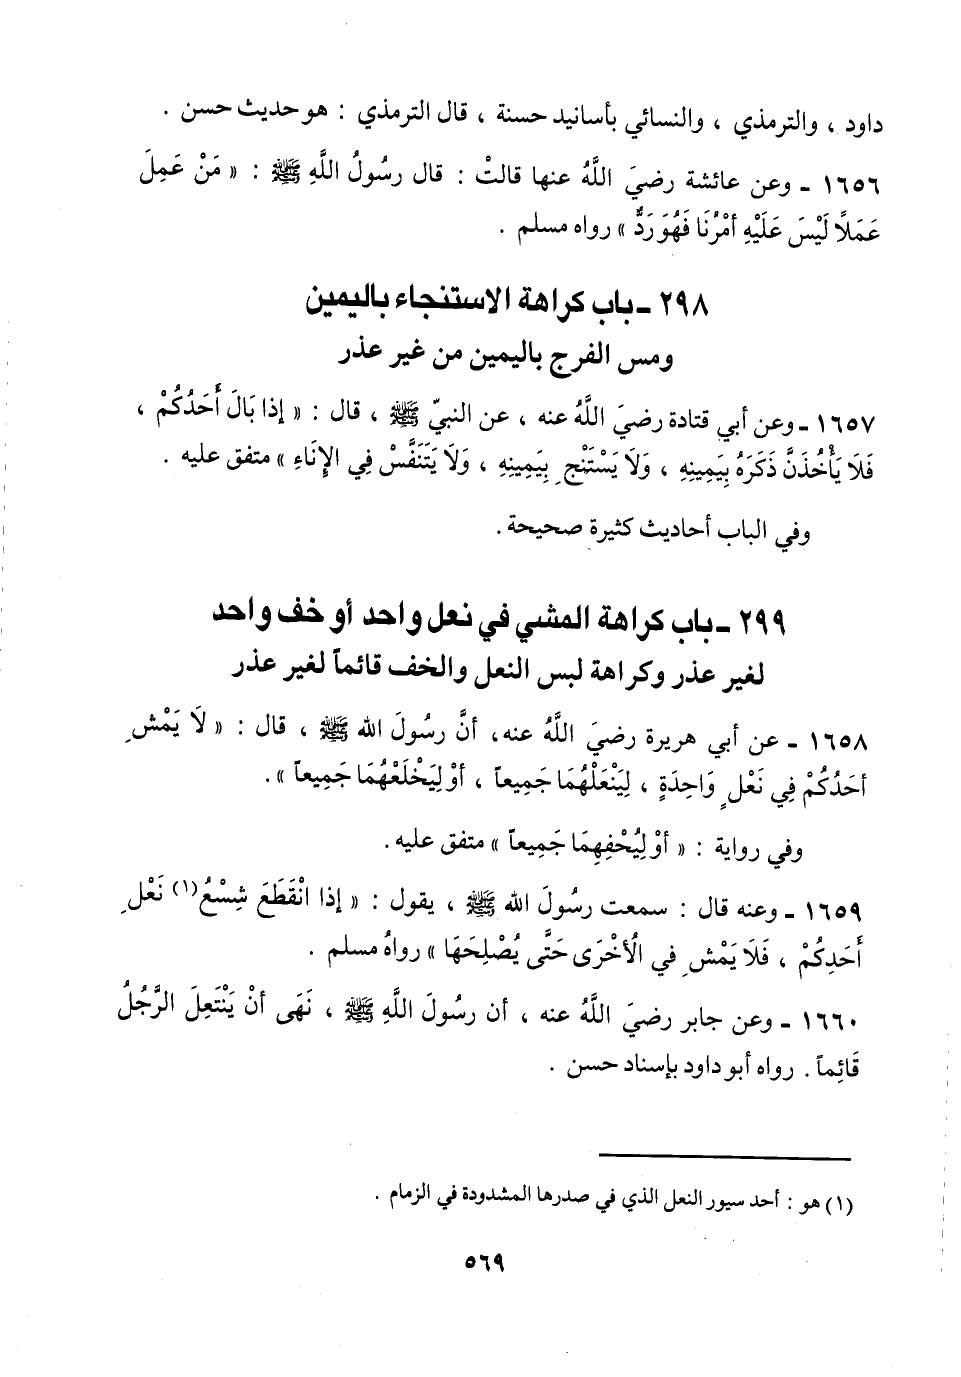 داود ، والترمذي ، والنسائي بأسانيد حسنة ، قال الترمذي : هو حديث حسن .
١٦٥٦ ـ وعن عائشة رضيَ اللَّهُ عنها قالتْ : قال رسُولُ اللَّهِ ﷺ : « مَنْ عَمِلَ
عَمَلًا لَيْسَ عَلَيْهِ أمْرُنَا فَهُوَ رَدٌّ » رواه مسلم .
٢٩٨ ـ باب كراهة الاستنجاء باليمين
ومس الفرج باليمين من غير عذر
١٦٥٧ ـ وعن أبي قتادة رضيَ اللَّهُ عنه ، عن النبيّ ﷺ ، قال : « إذا بَالَ أَحَدُكُمْ ،
فَلَا يَأْخُذَنَّ ذَكَرَهُ بِيَمِينِهِ ، وَلَا يَسْتَنْجِ بِيَمِينِهِ ، وَلَا يَتَنَفَّسْ فِي الإِنَاءِ » متفق عليه .
وفي الباب أحاديث كثيرة صحيحة .
٢٩٩ ـ باب كراهة المشي في نعل واحد أو خف واحد
لغير عذر وكراهة لبس النعل والخف قائماً لغير عذر
١٦٥٨ ـ عن أبي هريرة رضيَ اللَّهُ عنه، أنَّ رسُولَ الله ﷺ ، قال : « لَا يَمْشِ
أحَدُكُمْ فِي نَعْلٍ وَاحِدَةٍ ، لِيَنْعَلْهُمَا جَمِيعاً ، أوْ لِيَخْلَعْهُمَا جَمِيعاً » .
وفي رواية : « أوْ لِيُحْفِهِمَا جَمِيعاً » متفق عليه .
١٦٥٩ ـ وعنه قال : سمعت رسُولَ الله ﷺ ، يقول : « إذا انْقَطَعَ شِسْعُ(١) نَعْلِ
أَحَدِكُمْ ، فَلَا يَمْشِ في الُأخْرَى حَتَّى يُصْلِحَهَا » رواهُ مسلم .
١٦٦٠ ـ وعن جابر رضيَ اللَّهُ عنه ، أن رسُولَ اللَّهِ ﷺ ، نَهَى أنْ يَنْتَعِلَ الرَّجُلُ
قَائِماً . رواه أبو داود بإسناد حسن .
(١) هو : أحد سيور النعل الذي في صدرها المشدودة في الزمام .
٥٦٩